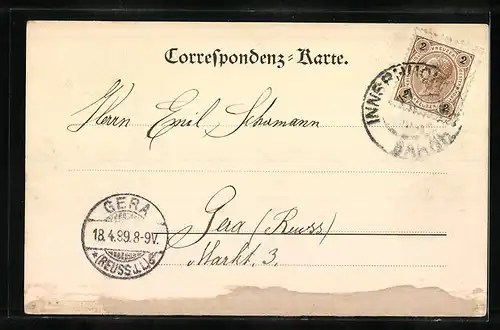 Correspondenz-Karte.
2 KREUZER 2
2 2
INNSBRUCK
Herrn Emil Schumann
GERA
18.4.99.8-9V.
*(REUSS J.L.)*
Gera (Reuss)
Markt 3.